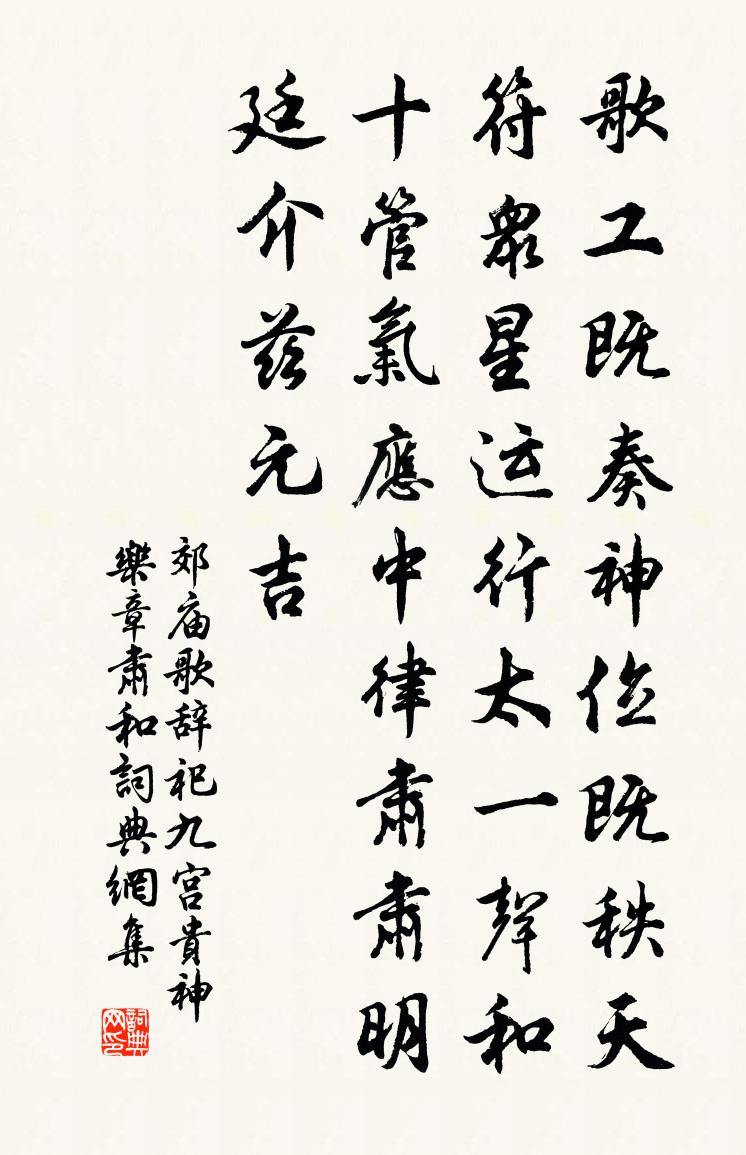 歌工既奏神位既秩天
符眾星运行太一聲和
十管氣應中律肅肅明
廷介兹元吉
郊庙歌辞祀九宮貴神
樂章肅和詞典網集
詞典网印